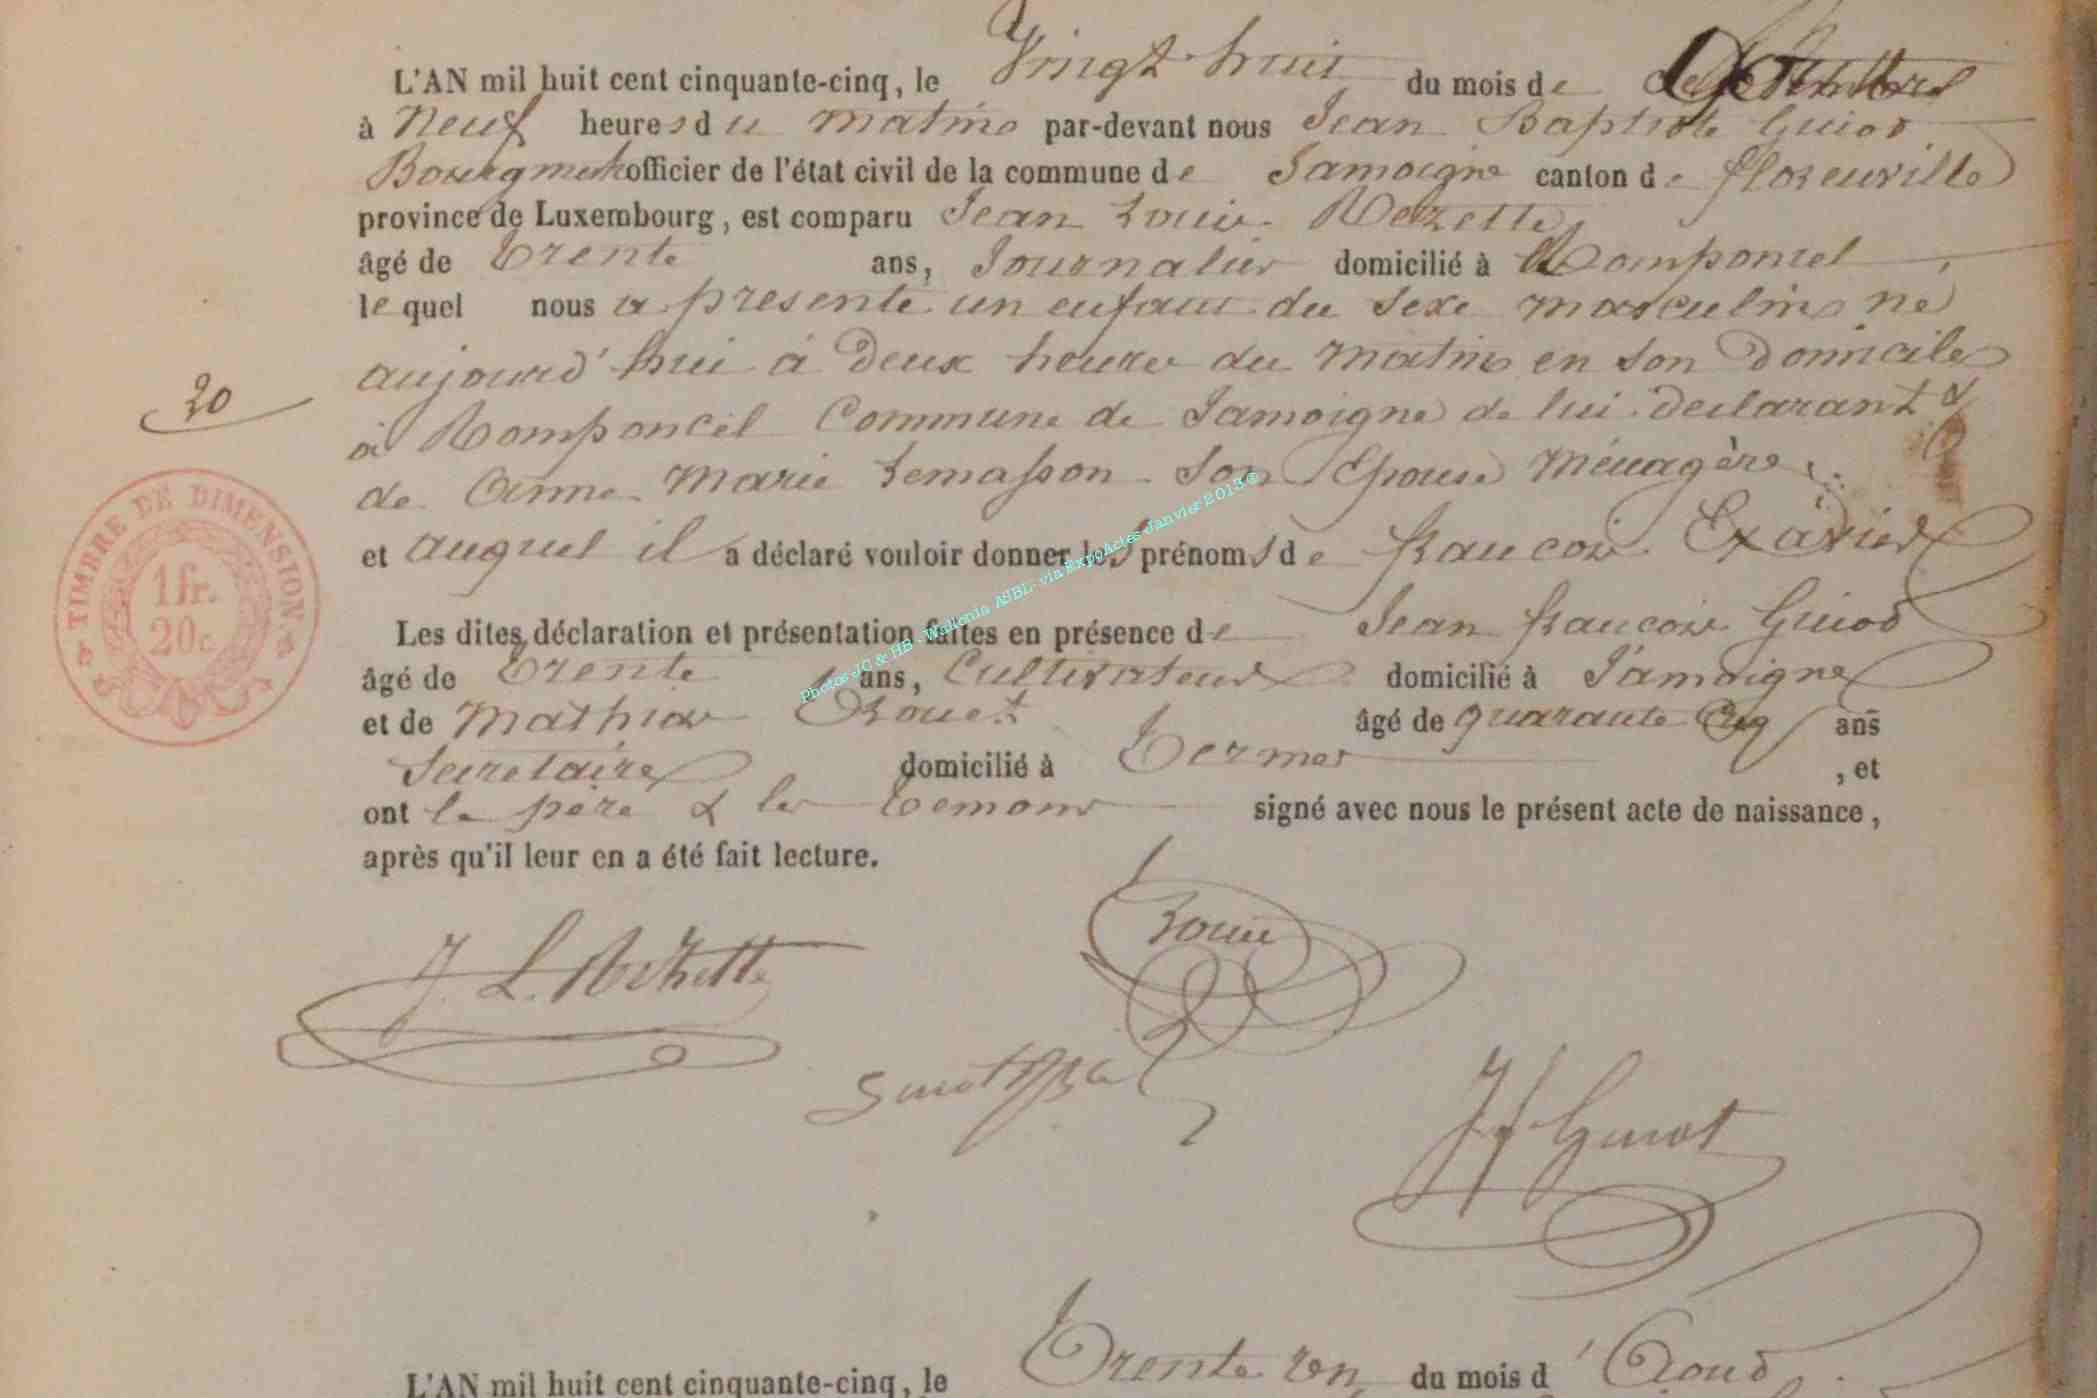 L'AN mil huit cent cinquante-cinq, le Vingt huit du mois de
à Neuf heures du matin par-devant nous Jean Baptiste Guiot
Bourgmestre officier de l'état civil de la commune de Jamoigne canton de florenville
province de Luxembourg, est comparu Jean Louis Rezette
âgé de Trente ans, Journalier domicilié à Romponcel,
lequel nous a présenté un enfant du sexe masculin né
aujourd'hui à Deux heures du matin en son Domicile
20
à Romponcel Commune de Jamoigne de lui Declarant &
de Anne Marie Lemasson son Epouse Ménagère
et auquel il a déclaré vouloir donner les prénoms de francois Exavier
Les dites déclaration et présentation faites en présence de Jean francois Guiot
âgé de Trente ans, Cultivateur domicilié à Jamoigne
et de Mathias Rouet âgé de quarante cinq ans
Secretaire domicilié à Termes, et
ont le père & les temoins signé avec nous le présent acte de naissance,
après qu'il leur en a été fait lecture.
TIMBRE DE DIMENSION
1 fr.
20 c
Photos JC & HB - Wallonia ASBL - via ExpoActes Janvier 2013 ©
J. L. Rezette
Rouet
Guiot JBte
J f Guiot
L'AN mil huit cent cinquante-cinq, le Trente un du mois d'Aout